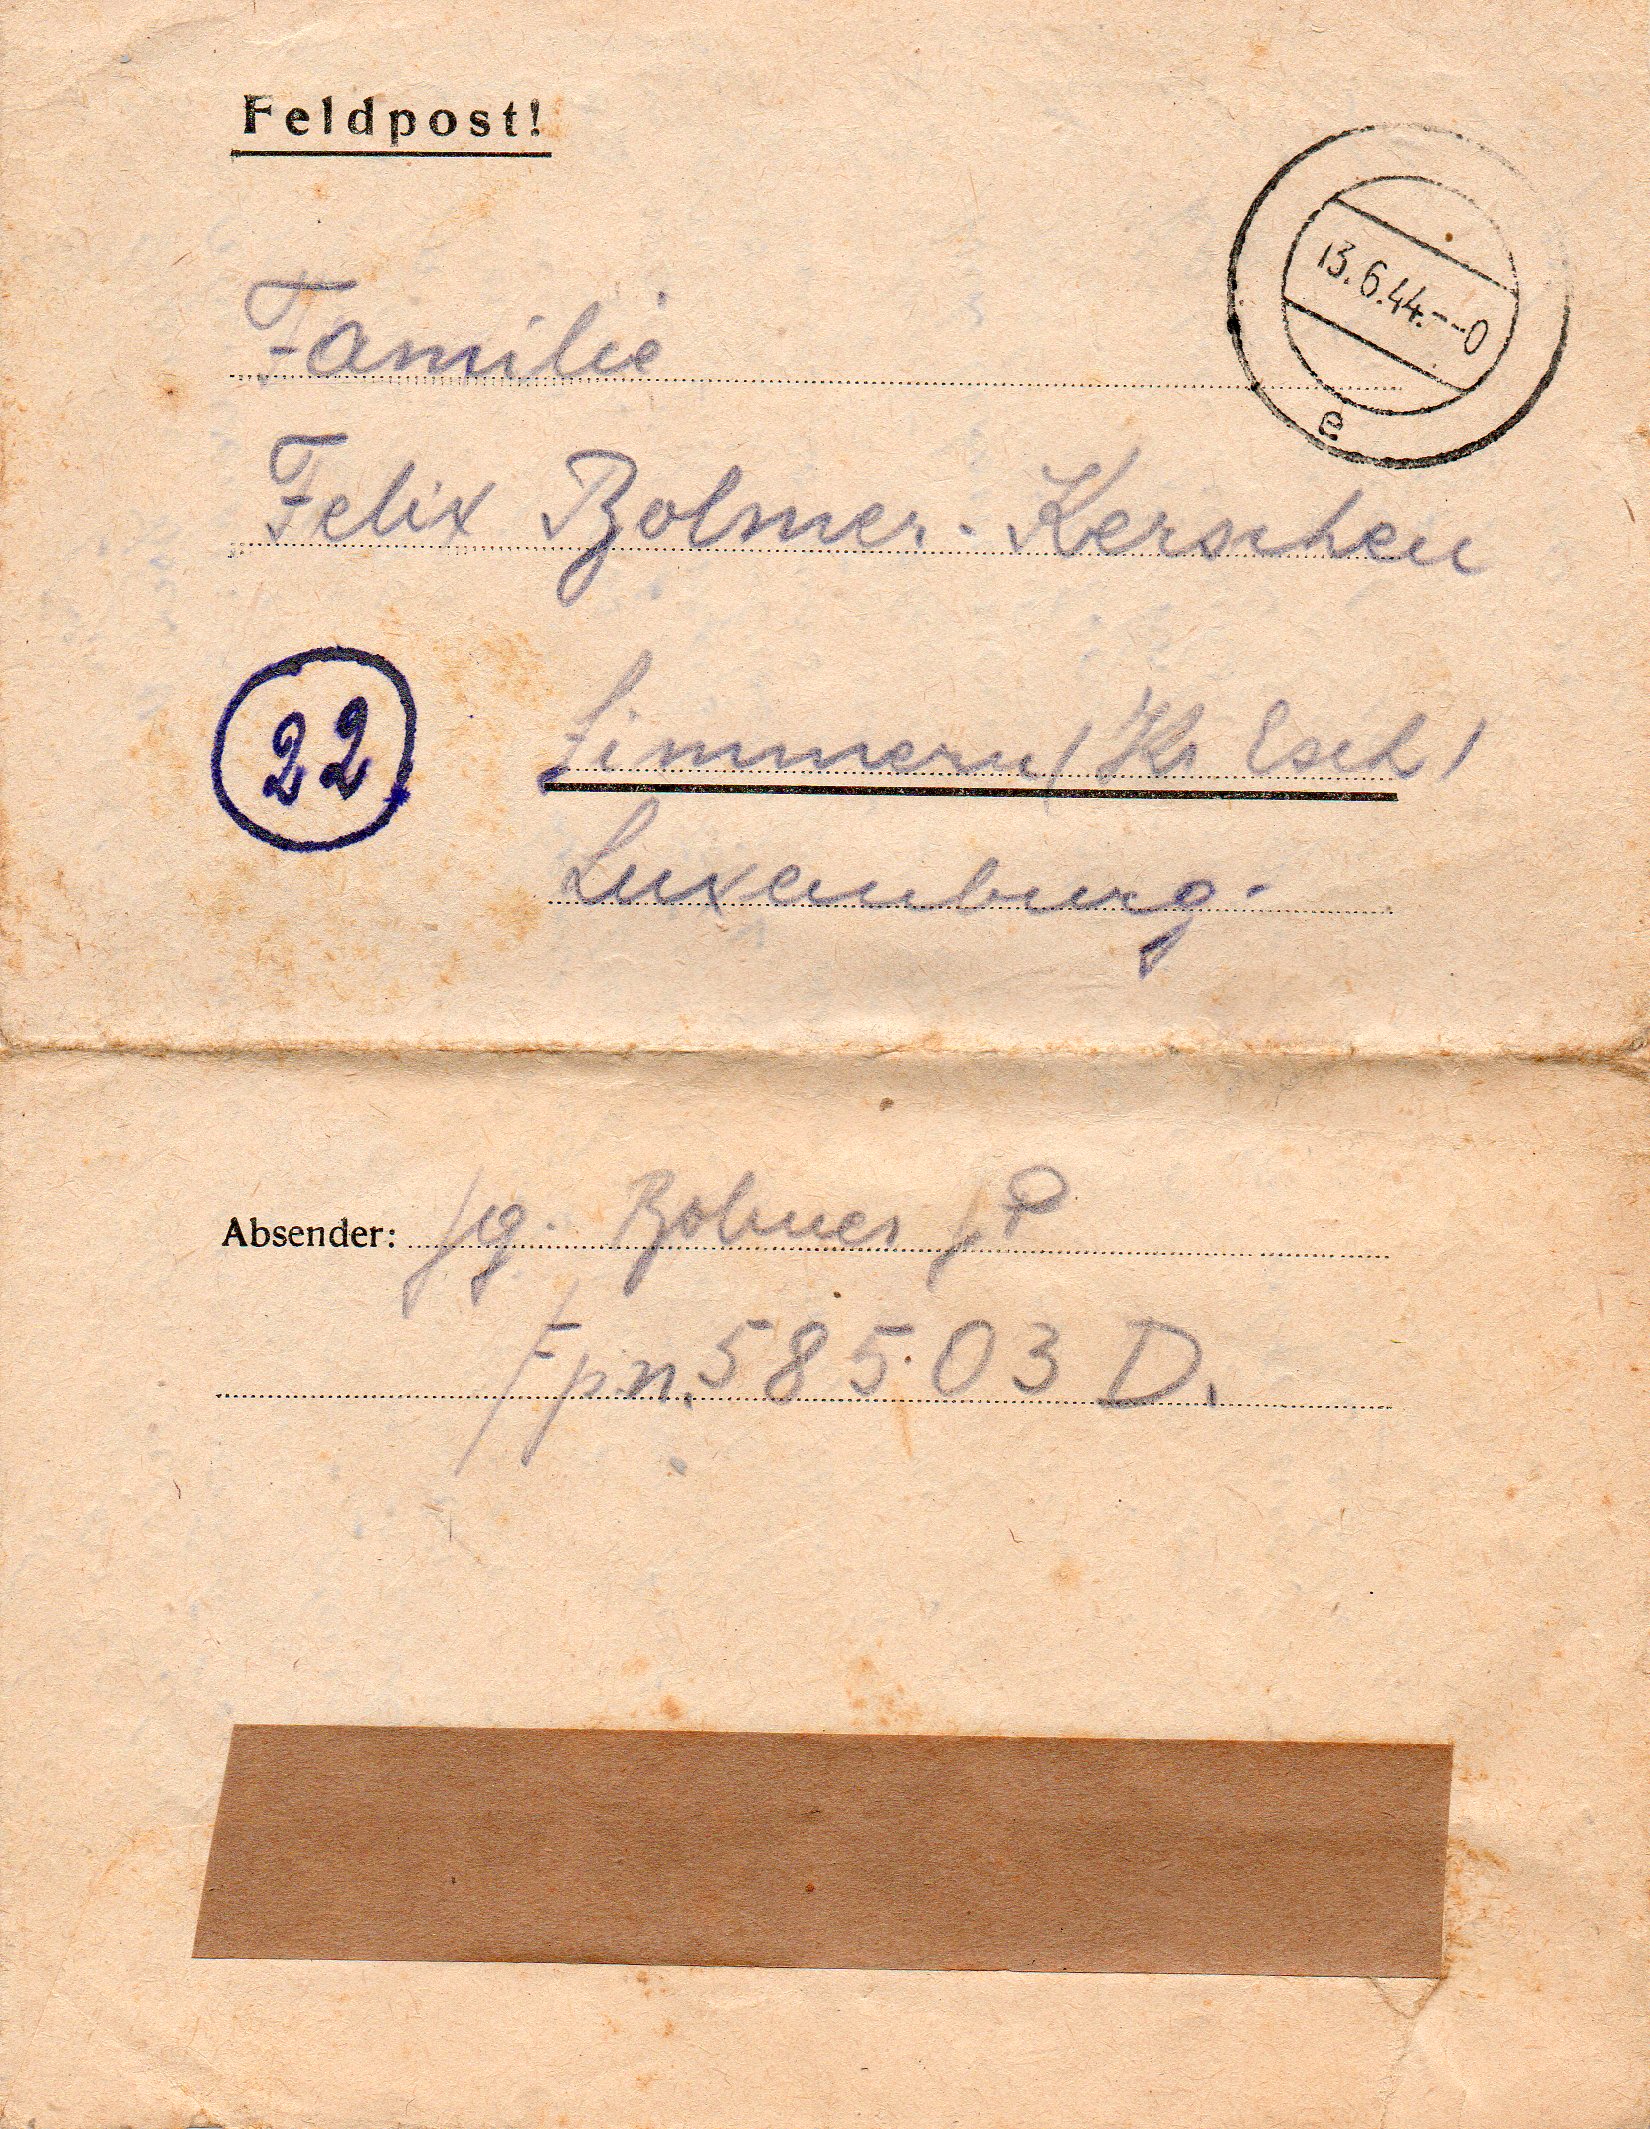 Feldpost!
13.6.44.--0
e
Familie
Felix Bolmer-Kerschen
22
Zimmern (Kr Esch)
Luxemburg.
Absender: Jg. Bolmer J.P
Fpn. 58503 D.